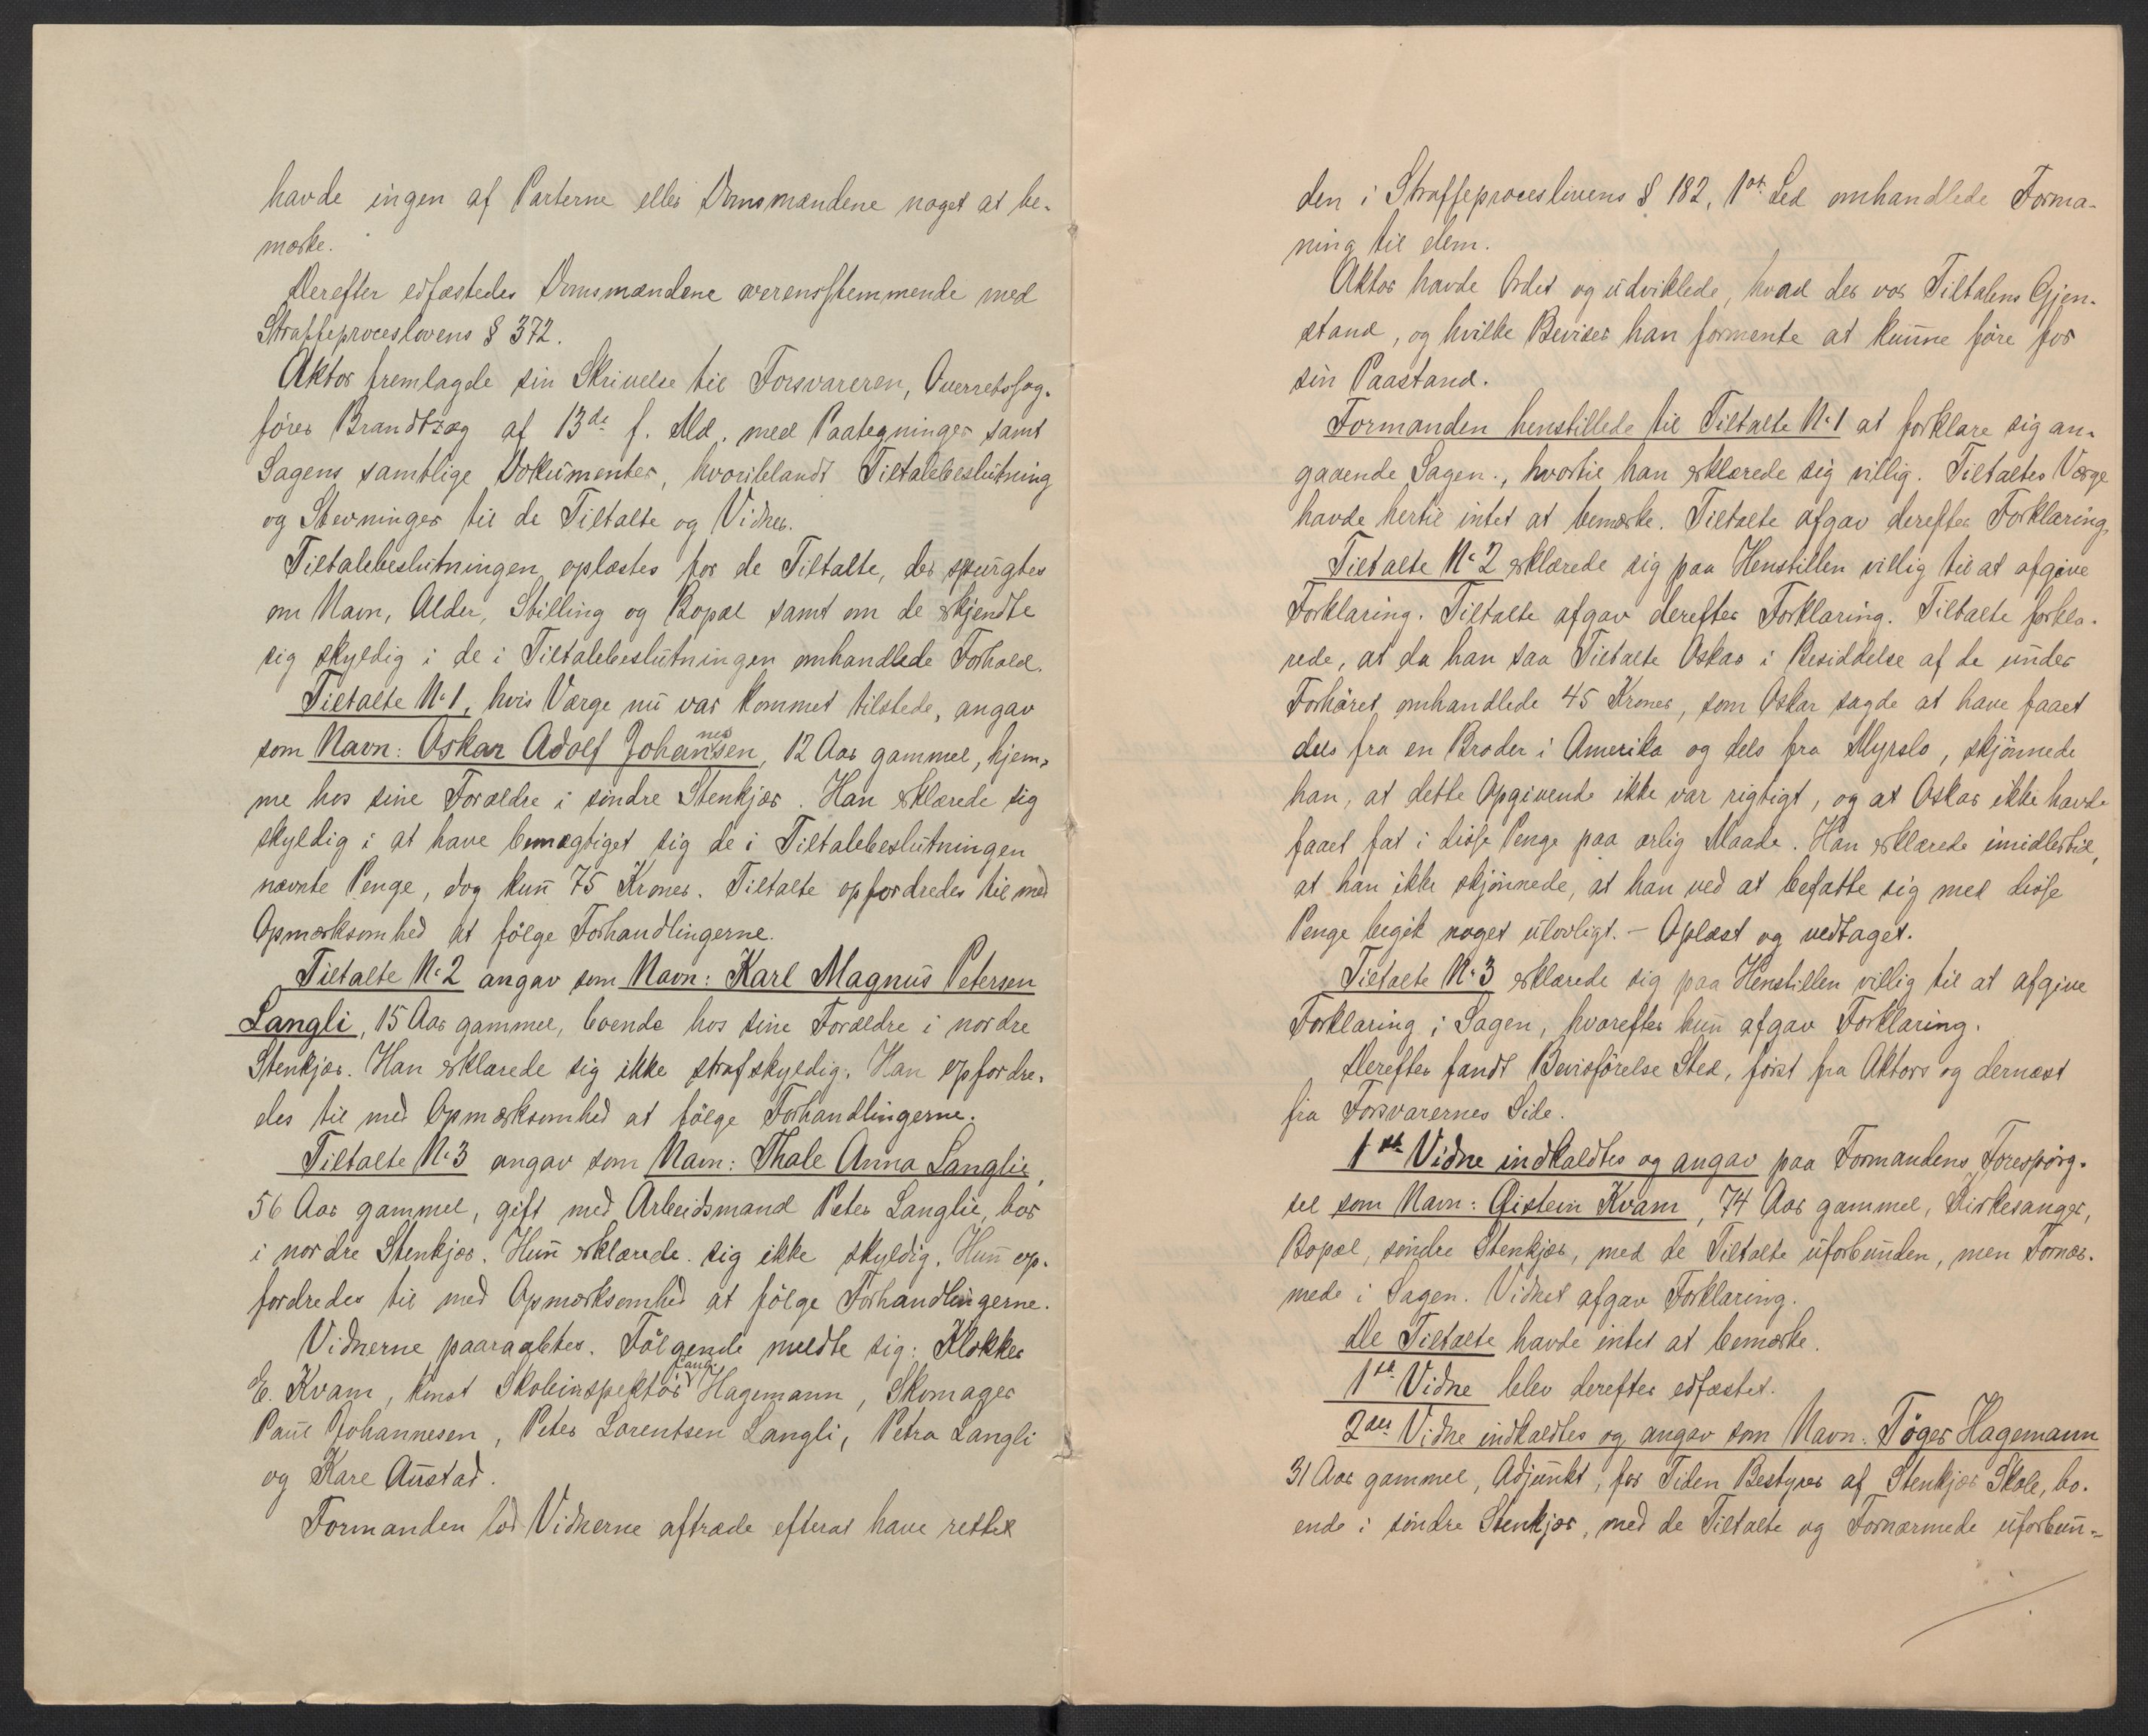 havde ingen af Parterne eller Domsmændene noget at be-
mærke.
Derefter edfæstedes Domsmændene overensstemmende med
Straffeproceslovens § 372.
Aktor fremlagde sin Skrivelse til Forsvareren, Overretssag-
fører Brandtzæg af 13de f. Md. med Paategninger samt
Sagens samtlige Dokumenter, hvoriblandt Tiltalebeslutning
og Stevninger til de Tiltalte og Vidner.
Tiltalebeslutningen oplæstes for de Tiltalte, der spurgtes
om Navn, Alder, Stilling og Bopæl samt om de erkjendte
sig skyldig i de i Tiltalebeslutningen omhandlede Forhold.
Tiltalte No 1, hvis Værge nu var kommet tilstede, angav
som Navn: Oskar Adolf Johannessen, 12 Aar gammel, hjem-
me hos sine Forældre i søndre Stenkjær. Han erklærede sig
skyldig i at have bemægtiget sig de i Tiltalebeslutningen
nævnte Penge, dog kun 75 Kroner. Tiltalte opfordredes til med
Opmærksomhed at følge Forhandlingerne.
Tiltalte No 2 angav som Navn: Karl Magnus Petersen
Langli, 15 Aar gammel, boende hos sine Forældre i nordre
Stenkjær. Han erklærede sig ikke strafskyldig. Han opfordre-
des til med Opmærksomhed at følge Forhandlingerne.
Tiltalte No 3 angav som Navn: Thale Anna Langlie,
56 Aar gammel, gift med Arbeidsmand Peter Langlie, bor
i nordre Stenkjær. Hun erklærede sig ikke skyldig. Hun op-
fordredes til med Opmærksomhed at følge Forhandlingerne.
Vidnerne paaraabtes. Følgende meldte sig: Klokker
E. Kvam, konst Skoleinspektør Hagemann, Skomager
Paul Johannesen, Peter Lorentsen Langli, Petra Langli
og Kare Austad.
Formanden lod Vidnerne aftræde efterat have rettet
den i Straffeproceslovens § 182, 1ste Led omhandlede Forma-
ning til dem.
Aktor havde Ordet og udviklede, hvad der var Tiltalens Gjen-
stand, og hvilke Beviser han formente at kunne føre for
sin Paastand.
Formanden henstillede til Tiltalte No 1 at forklare sig an-
gaaende Sagen., hvortil han erklærede sig villig. Tiltaltes Værge
havde hertil intet at bemærke. Tiltalte afgav derefter Forklaring.
Tiltalte No 2 erklærede sig paa Henstillen villig til at afgive
Forklaring. Tiltalte afgav derefter Forklaring. Tiltalte forkla-
rede, at da han saa Tiltalte Oskar i Besiddelse af de under
Forhøret omhandlede 45 Kroner, som Oskar sagde at have faaet
dels fra en Broder i Amerika og dels fra Myrslo, skjønnede
han, at dette Opgivende ikke var rigtigt, og at Oskar ikke havde
faaet fat i disse Penge paa ærlig Maade. Han erklærede imidlertid,
at han ikke skjønnede, at han ved at befatte sig med disse
Penge begik noget ulovligt. – Oplæst og vedtaget.
Tiltalte No 3 erklærede sig paa Henstillen villig til at afgive
Forklaring i Sagen, hvorefter hun afgav Forklaring.
Derefter fandt Bevisførelse Sted, først fra Aktors og dernæst
fra Forsvarernes Side.
1ste Vidne indkaldtes og angav paa Formandens Forespørg-
sel som Navn: Øistein Kvam, 74 Aar gammel, Kirkesanger,
Bopæl, søndre Stenkjær, med de Tiltalte uforbunden, men Fornær-
mede i Sagen. Vidnet afgav Forklaring.
De Tiltalte havde intet at bemærke.
1ste Vidne blev derefter edfæstet.
2det Vidne indkaldtes og angav som Navn: Tøger Hagemann
31 Aar gammel, Adjunkt, for Tiden Bestyrer af Stenkjær Skole, bo-
ende i søndre Stenkjær, med de Tiltalte og Fornærmede uforbun-